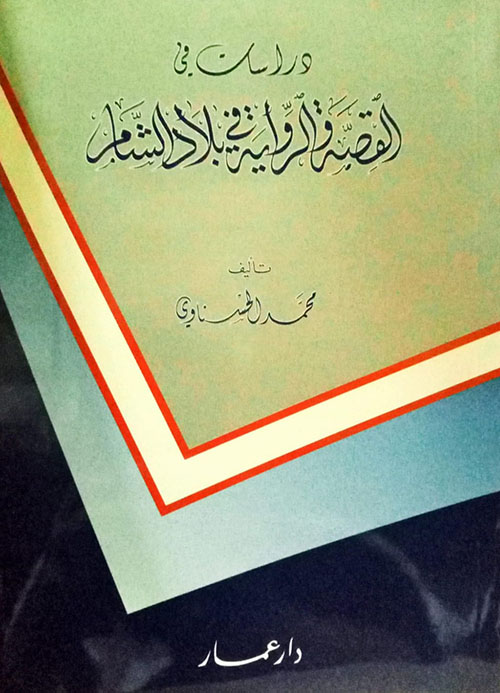 دراسات في
القصة والرواية في بلاد الشام
تأليف
محمد الحسناوي
دار عمار